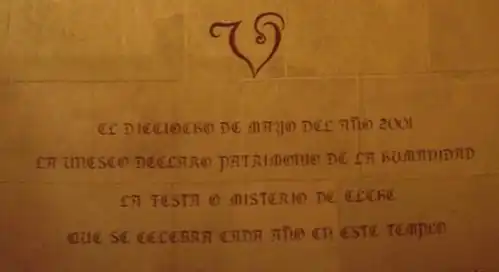 EL DIECIOCHO DE MAYO DEL AÑO 2001
LA UNESCO DECLARO PATRIMONIO DE LA HUMANIDAD
LA FESTA O MISTERIO DE ELCHE
QUE SE CELEBRA CADA AÑO EN ESTE TEMPLO